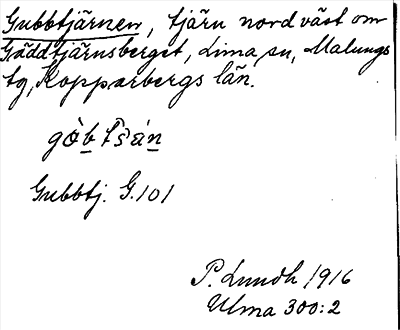 Gubbtjärnen, tjärn nordväst om
Gäddtjärnsberget, Lima sn, Malungs
tg, Kopparbergs län.
gòb̲tŝán̲
Gubbtj. G. 101
P. Lundh 1916
Ulma 300:2